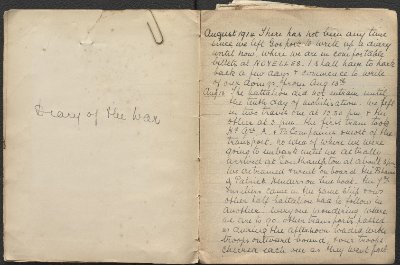 Diary of the War
August 1914 There has not been any time
since we left Gosport to write up a diary
until now, when we are in comfortable
billets at NOYELLES. I shall have to hark
back a few days & commence to write
of our doings from Aug 13th
Aug 13 The battalion did not entrain until
the tenth day of mobilisation. We left
in two trains one at 12.30 pm & the
other at 2 pm. The first train took
Hd Qrs A. & B Companies & most of the
transport. No idea of where we were
going to embark until we actually
arrived at Southampton at about 3 pm
We detrained & went on board the
& Patrick Henderson line boat. The
Fusiliers came in the same ship & our
other half battalion had to follow in
another. Everyone wondering where
we are to go. Other transports passed
us during the afternoon loaded with
troops outward bound. Our troops
cheered each one as they went past